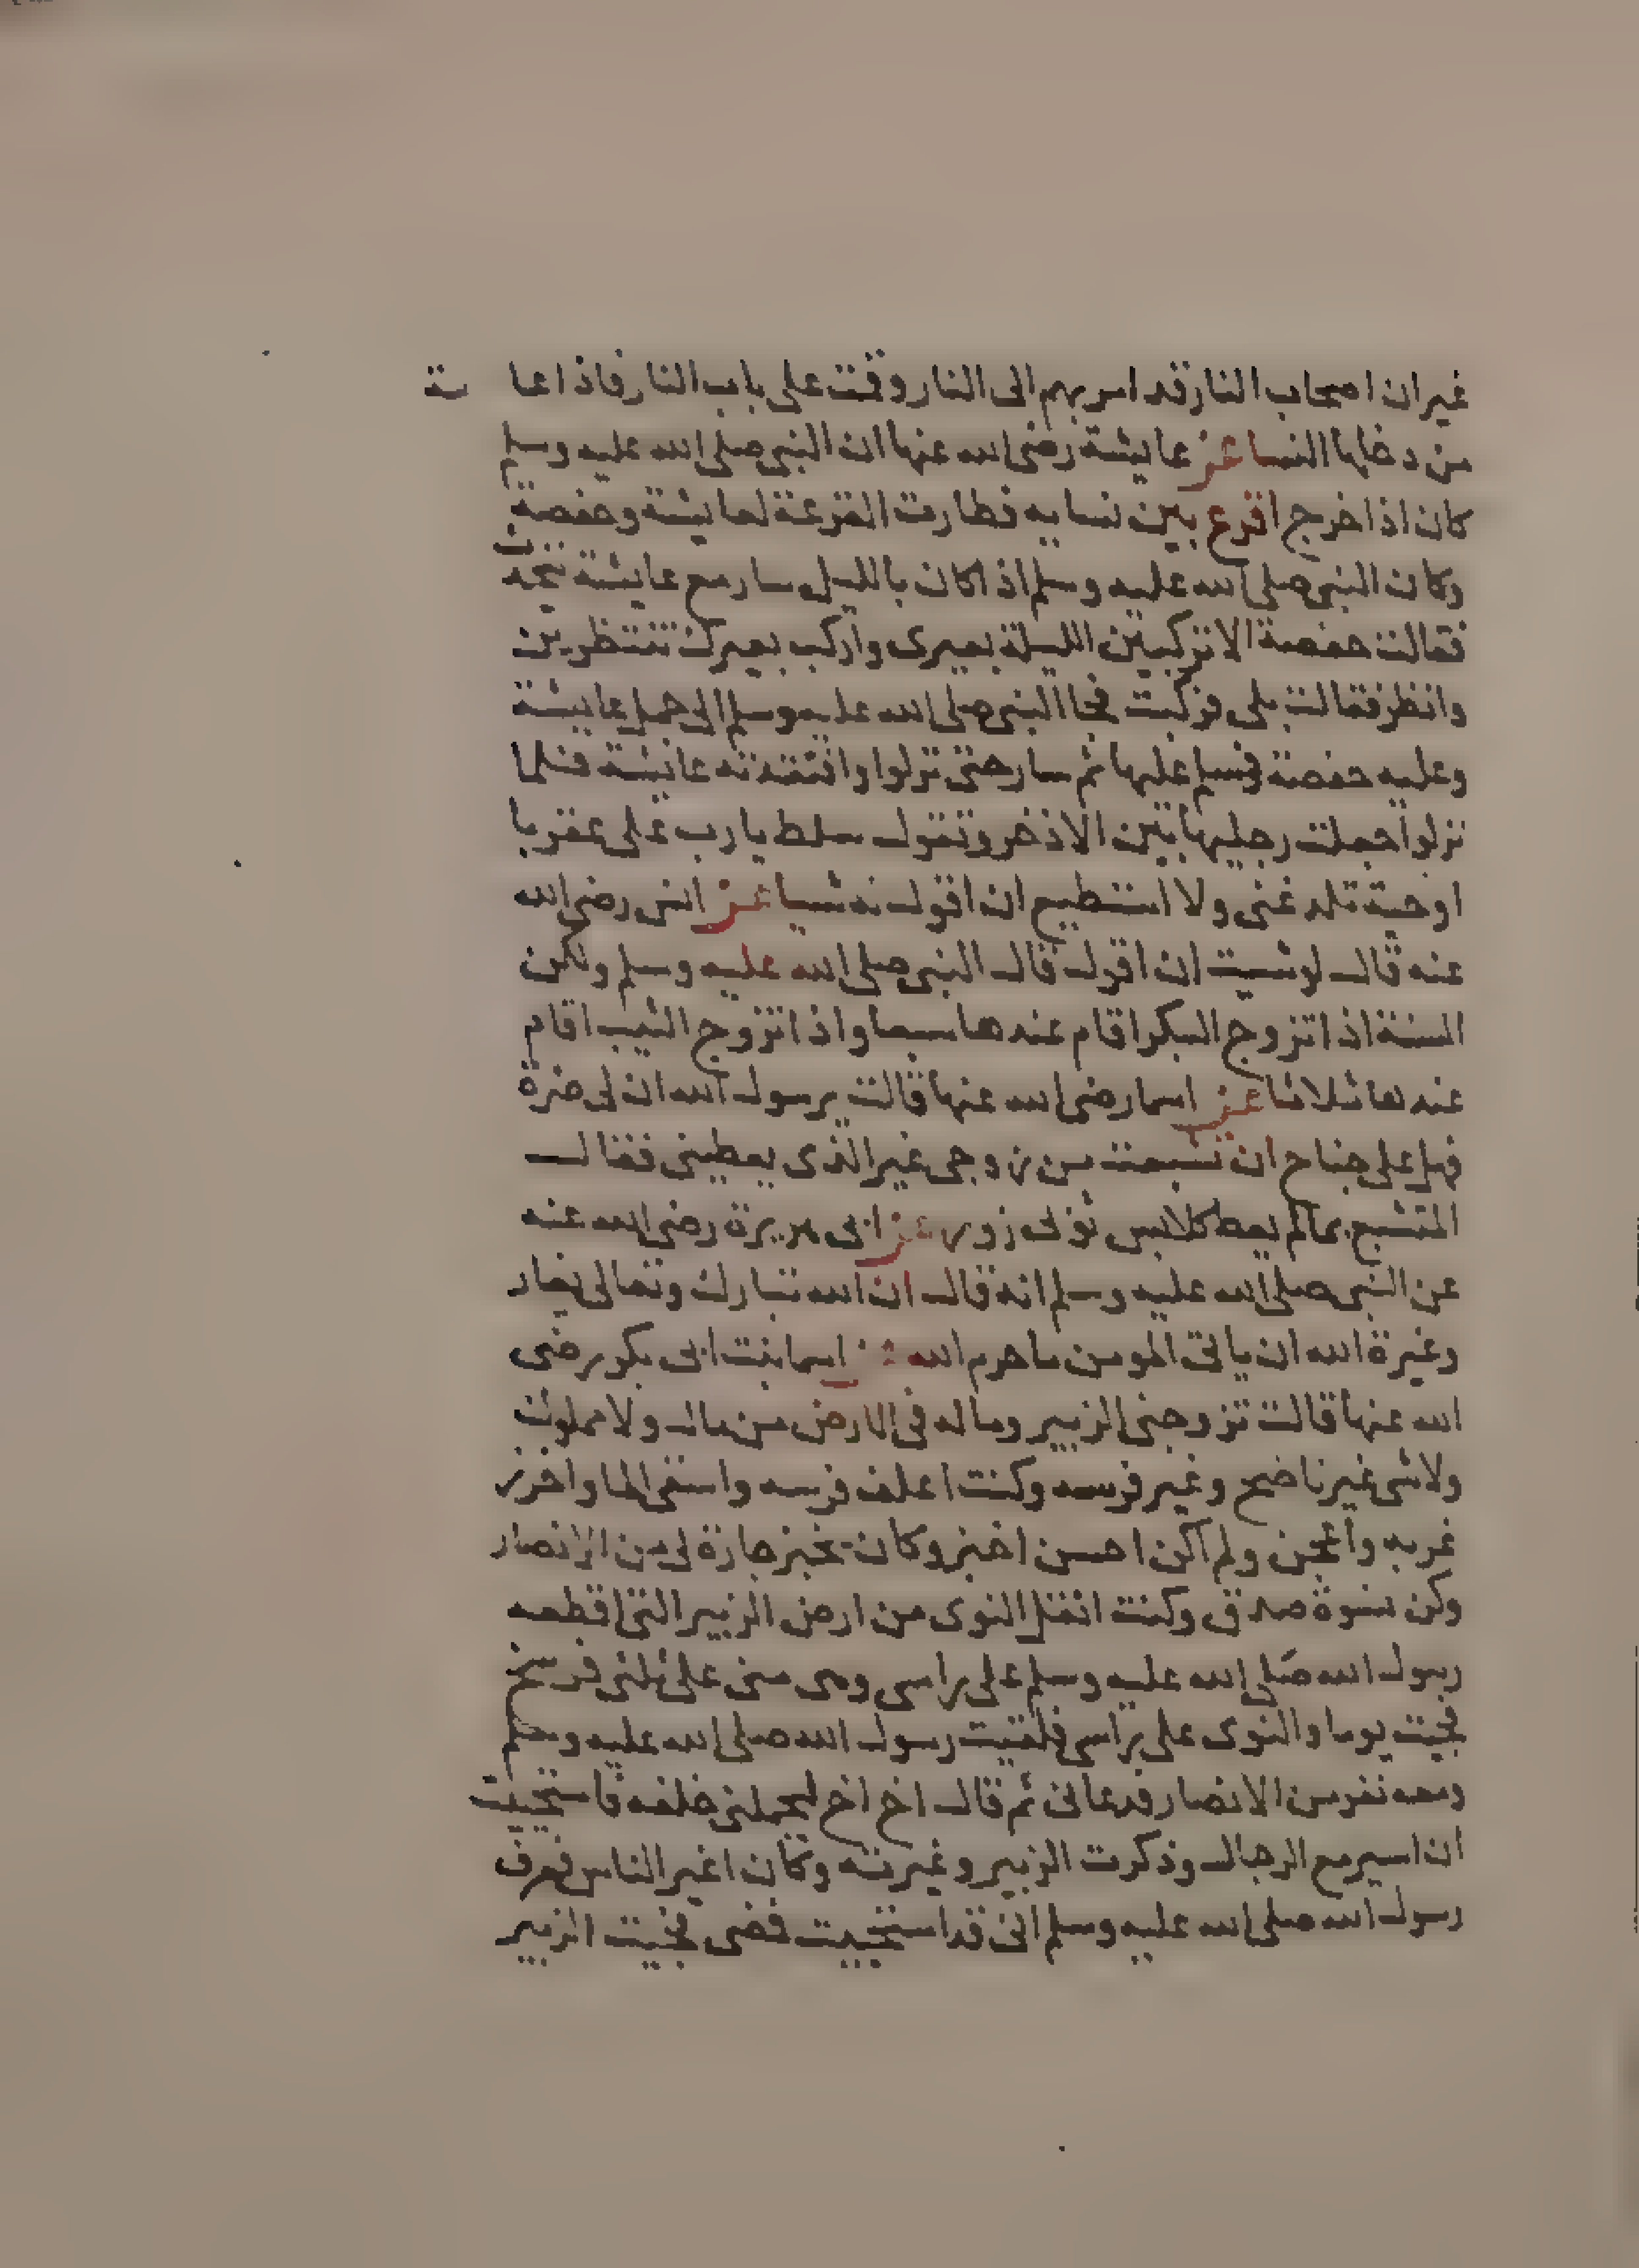 غير ان اصحاب النار قد امر بهم الى النار وقمت على باب النار فاذا عامة
من دخلها النسا عن عايشة رضى الله عنها ان النبى صلى الله عليه وسلم
كان اذا خرج اقرع بين نسايه فطارت القرعة لعايشة وحفصة
وكان النبى صلى الله عليه وسلم اذا كان بالليل سار مع عايشة يتحدث
فقالت حفصة الا تركبين الليلة بعيرى واركب بعيرك تنتظرين
وانظر فقالت بلى فركبت فجا النبى صلى الله عليه وسلم الى جمل عايشة
وعليه حفصة فسلم عليها ثم سار حتى نزلوا وافتقدته عايشة فلما
نزلوا جعلت رجليها بين الاذخر وتقول يارب سلط على عقربا
او حية تلدغنى ولا استطيع ان اقول له شيا عن انس رضى الله
عنه قال لو شيت ان اقول قال النبى صلى الله عليه وسلم ولكن
السنة اذا تزوج البكر اقام عندها سبعا واذا تزوج الثيب اقام
عندها ثلاثا عن اسما رضى الله عنها قالت يرسول الله ان لى ضرة
فهل على جناح ان تشبعت من زوجى غير الذى يعطينى فقال
المتشبع بما لم يعط كلابس ثوبى زور عن ابى هريرة رضى الله عنه
عن النبى صلى الله عليه وسلم انه قال ان الله تبارك وتعالى يغار
وغيرة الله ان ياتى المومن ما حرم الله عن اسما بنت ابى بكر رضى
الله عنها قالت تزوجنى الزبير وماله فى الارض من مال ولا مملوك
ولا شى غير ناضح وغير فرسه وكنت اعلف فرسه واستقى الما واخرز
غربه واعجن ولم اكن احسن اخبز وكان يخبز جارة لى من الانصار
وكن نسوة صدق وكنت انقل النوى من ارض الزبير التى اقطعه
رسول الله صلى الله عليه وسلم على راسى وهى منى على ثلثى فرسخ
فجيت يوما والنوى على راسى فلقيت رسول الله صلى الله عليه وسلم
ومعه نفر من الانصار فدعانى ثم قال اخ اخ ليحملنى خلفه فاستحييت
ان اسير مع الرجال وذكرت الزبير وغيرته وكان اغير الناس فعرف
رسول الله صلى الله عليه وسلم انى قد استحييت فمضى فجيت الزبير